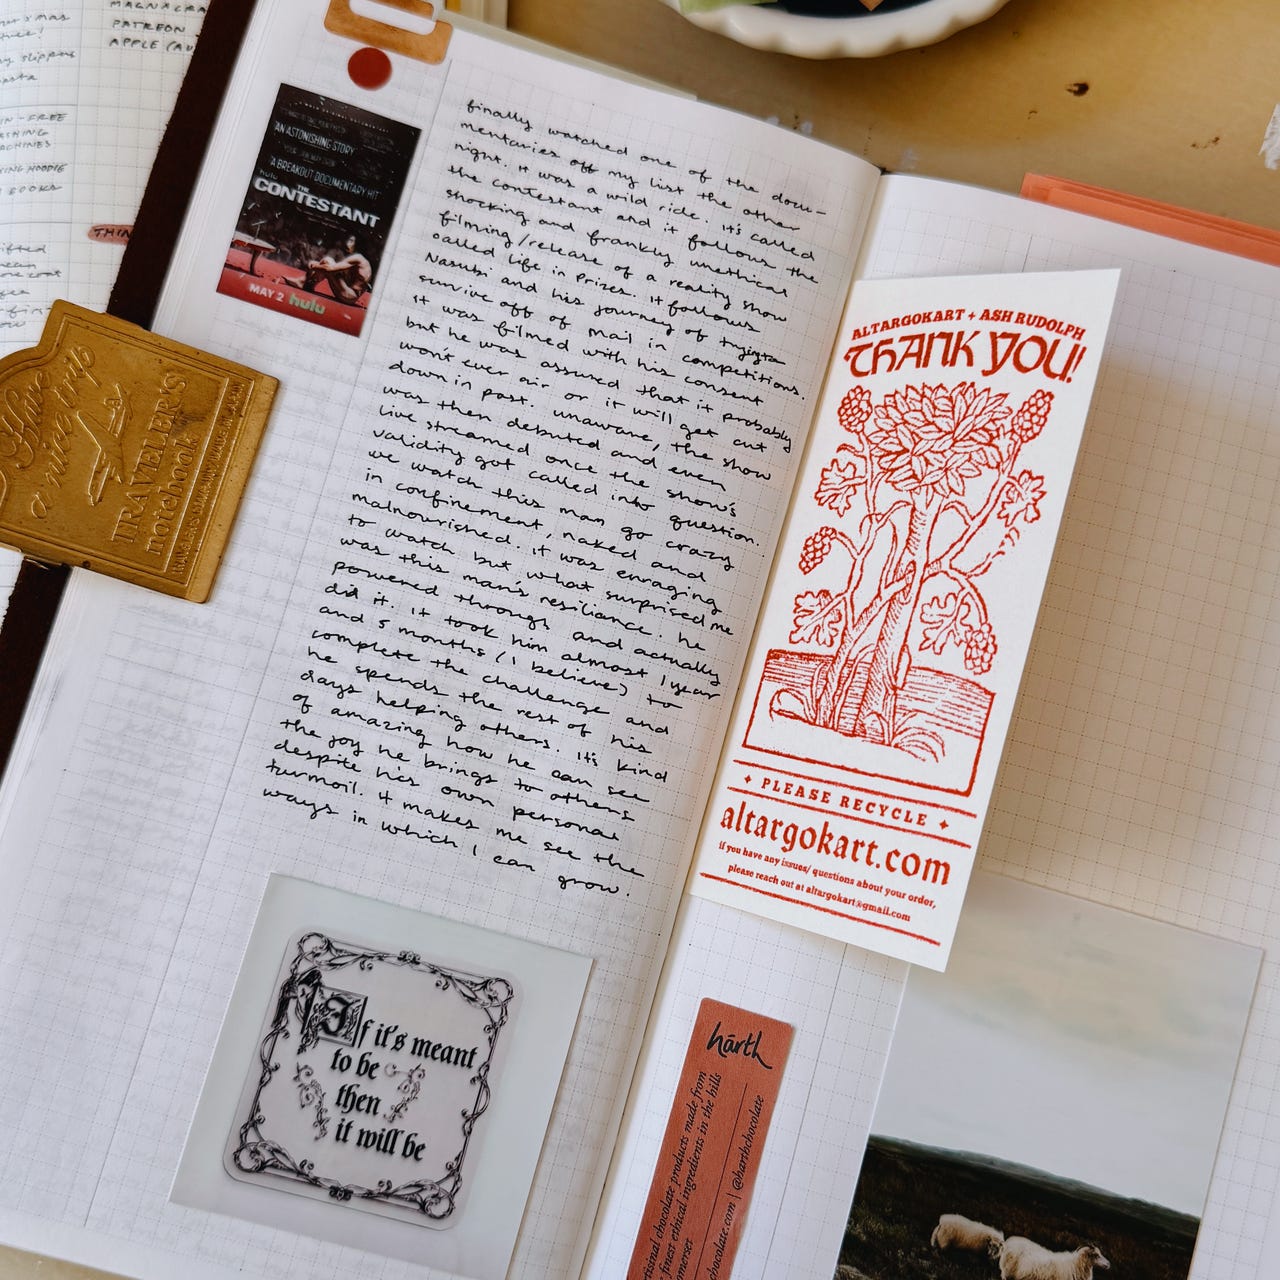 MAGNACRA
PATREON
APPLE CAU
slippers
IN-FREE
MACHINES
HOODIE
BOOKS
THIN
coat
Have
a nice trip
TRAVELER'S
notebook
AN ASTONISHING STORY
A BREAKOUT DOCUMENTARY HIT
hulu
THE
CONTESTANT
MAY 2 hulu
finally watched one of the docu-
mentaries off my list the other
night. it was a wild ride. it's called
the contestant and it follows the
shocking and frankly unethical
filming/release of a reality show
called life in prizes. It follows
Nasubi and his journey of
survive off of mail in competitions.
it was filmed with his consent
but he was assured that it probably
won't ever air or it will get cut
down in post. unaware, the show
was then debuted and even
live streamed once the show's
validity got called into question.
we watch this man go crazy
in confinement, naked and
malnourished. it was enraging
to watch but what surprised me
was this man's resiliance. he
powered through and actually
did it. it took him almost 1 year
and 5 months (i believe) to
complete the challenge and
he spends the rest of his
days helping others. it's kind
of amazing how he can see
the joy he brings to others
despite his own personal
turmoil. it makes me see the
ways in which i can grow.
If it's meant
to be
then
it will be
ALTARGOKART + ASH RUDOLPH
THANK YOU!
PLEASE RECYCLE
altargokart.com
if you have any issues/ questions about your order,
please reach out at altargokart@gmail.com
hārth
artisinal chocolate products made from
finest ethical ingredients in the hills
omerset
chocolate.com | @harthchocolate